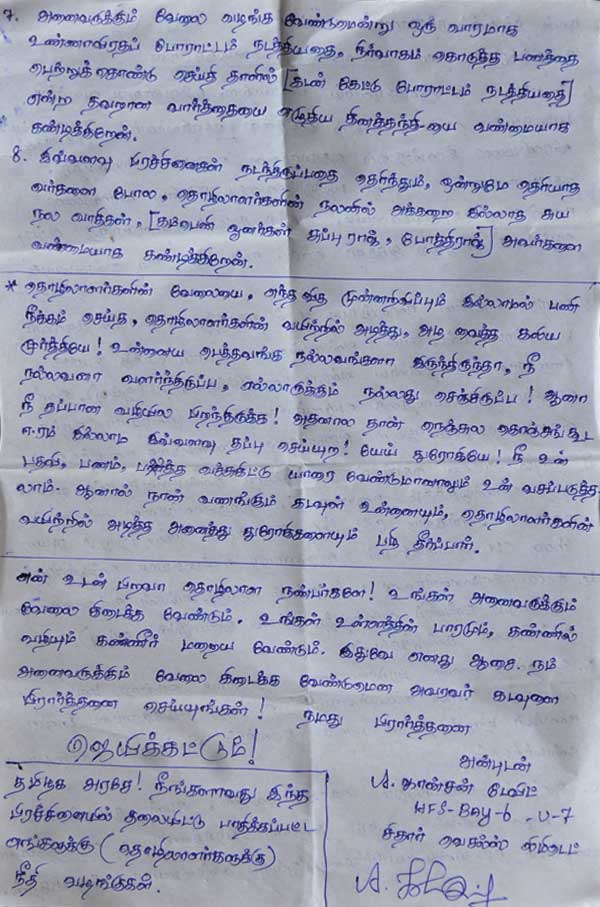 7. அனைவருக்கும் வேலை வழங்க வேண்டுமென்று ஒரு வாரமாக
உண்ணாவிரதப் போராட்டம் நடத்தியதை, நிர்வாகம் கொடுத்த பணத்தை
பெற்றுக்கொண்டு செய்தி தாளில் [கடன் கேட்டு போராட்டம் நடத்தியதை]
என்ற தவறான வார்த்தையை எழுதிய தினத்தந்தி யை வண்மையாக
கண்டிக்கிறேன்.
8. இவ்வளவு பிரச்சினைகள் நடந்திருப்பதை தெரிந்தும், ஒன்றுமே தெரியாத
வர்களை போல, தொழிலாளர்களின் நலனில் அக்கறை இல்லாத சுய
நல வாதிகள், [கம்பெனி ஆனர்கள் சுப்பு ராஜ், போத்திராஜ்] அவர்களை
வண்மையாக கண்டிக்கிறேன்.
* தொழிலாளர்களின் வேலையை, எந்த வித முன்னறிவிப்பும் இல்லாமல் பணி
நீக்கம் செய்த, தொழிலாளர்களின் வயிற்றில் அடித்து, அழ வைத்த கலிய
மூர்த்தியே! உன்னைய பெத்தவங்க நல்லவங்களா இருந்திருந்தா, நீ
நல்லவனா வளர்ந்திருப்ப, எல்லாருக்கும் நல்லது செஞ்சிருப்ப! ஆனா
நீ தப்பான வழியில பிறந்திருக்க! அதனால தான் நெஞ்சுல கொஞ்சங்கூட
ஈரம் இல்லாம இவ்வளவு தப்பு செய்யுற! யேய் துரோகியே! நீ உன்
பதவி, பணம், வச்சுகிட்டு யாரை வேண்டுமானாலும் உன் வசப்படுத்த
லாம். ஆனால் நான் வணங்கும் கடவுள் உன்னையும், தொழிலாளர்களின்
வயிற்றில் அடித்த அனைத்து துரோகிகளையும் பழி தீர்ப்பார்.
என் உடன் பிறவா தொழிலாள நண்பர்களே! உங்கள் அனைவருக்கும்
வேலை கிடைக்க வேண்டும். உங்கள் உள்ளத்தின் பாரமும், கண்ணில்
வழியும் கண்ணீர் மறைய வேண்டும். இதுவே எனது ஆசை. நம்
அனைவருக்கும் வேலை கிடைக்க வேண்டுமென அவரவர் கடவுளை
பிரார்த்தனை செய்யுங்கள்! நமது பிரார்த்தனை
ஜெயிக்கட்டும்!
தமிழக அரசே! நீங்களாவது இந்த
பிரச்சினையில் தலையிட்டு பாதிக்கப்பட்ட
எங்களுக்கு (தொழிலாளர்களுக்கு)
நீதி வழங்குங்கள்.
அன்புடன்
A. கான்சன் டேவிட்
HFS-Bay-6 -U-7
சிதார் வெசல்ஸ் லிமிடெட்